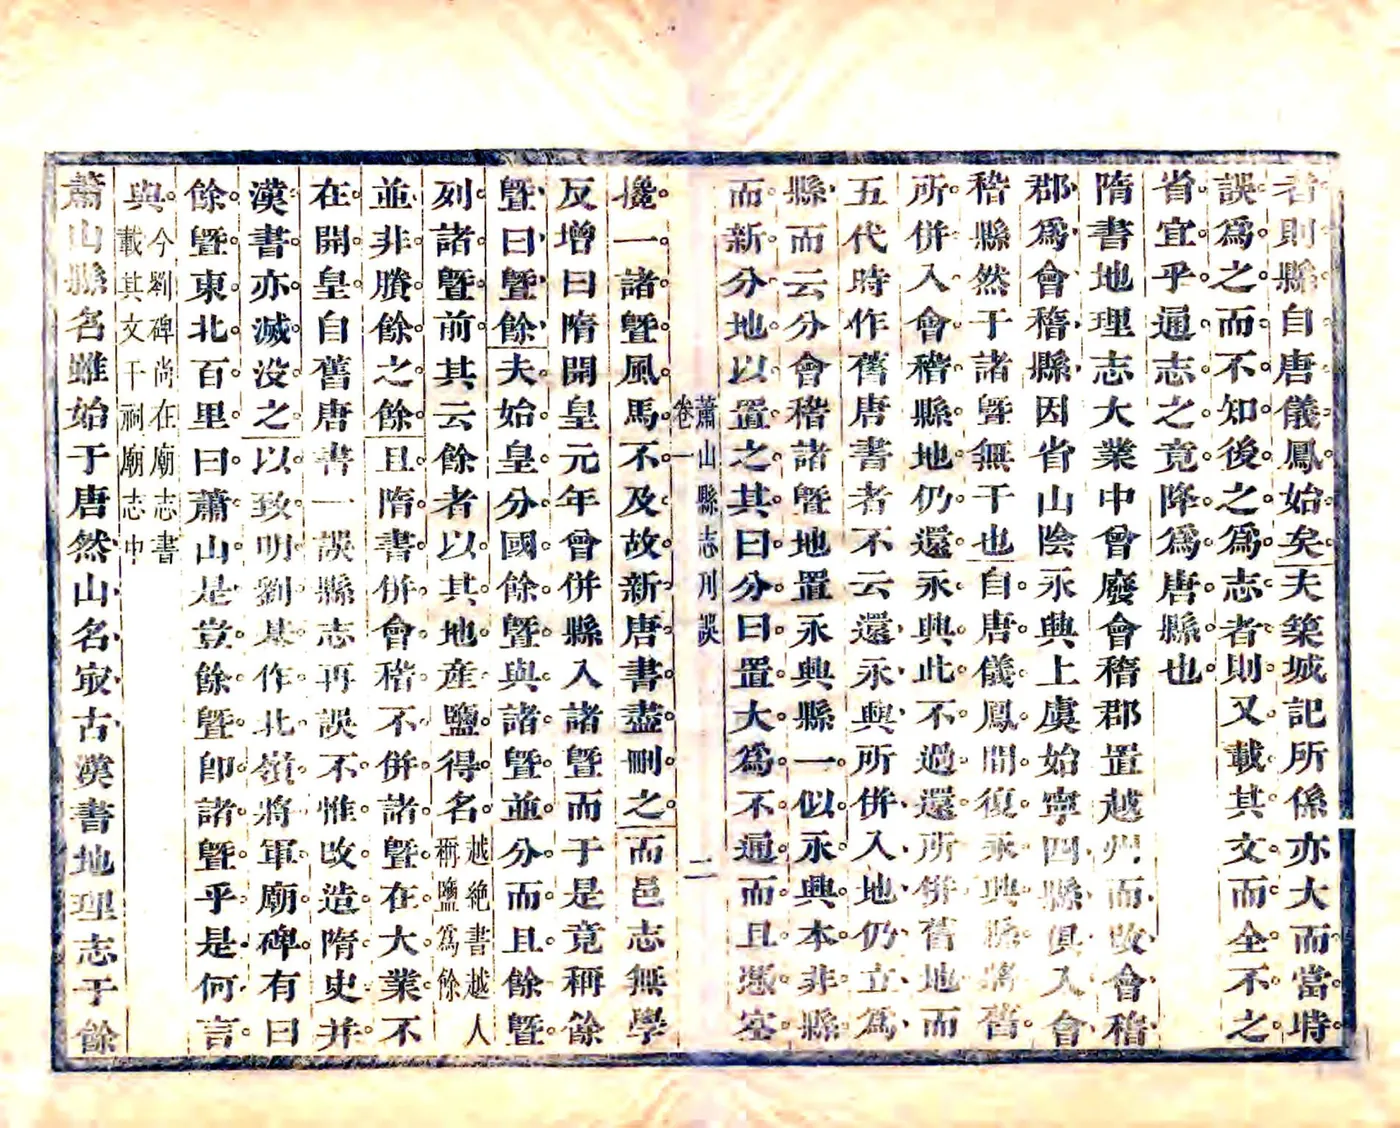 者則縣自唐儀鳳始矣夫築城記所係亦大而當時
誤爲之而不知後之爲志者則又載其文而全不之
省宜乎通志之竟降爲唐縣也
隋書地理志大業中會廢會稽郡置越州而改會稽
郡爲會稽縣因省山陰永興上虞始寧四縣俱入會
稽縣然于諸曁無干也自唐儀鳳間復永興縣將舊
所併入會稽縣地仍還永興此不過還所併舊地而
五代時作舊唐書者不云還永興所併入地仍立爲
縣而云分會稽諸曁地置永興縣一似永興本非縣
而新分地以置之其曰分曰置大爲不通而且憑空
蕭山縣志刊誤
卷一
二
攙一諸曁風馬不及故新唐書盡刪之而邑志無學
反增曰隋開皇元年會併縣入諸曁而于是竟稱餘
曁曰曁餘夫始皇分國餘曁與諸曁並分而且餘曁
列諸曁前其云餘者以其地產鹽得名越絶書越人稱鹽爲餘
並非賸餘之餘且隋書併會稽不併諸曁在大業不
在開皇自舊唐書一誤縣志再誤不惟改造隋史并
漢書亦滅没之以致明劉基作北嶺將軍廟碑有曰
餘曁東北百里曰蕭山是豈餘曁卽諸曁乎是何言
與今劉碑尚在廟志書載其文于祠廟志中
蕭山縣名雖始于唐然山名㝡古漢書地理志于餘